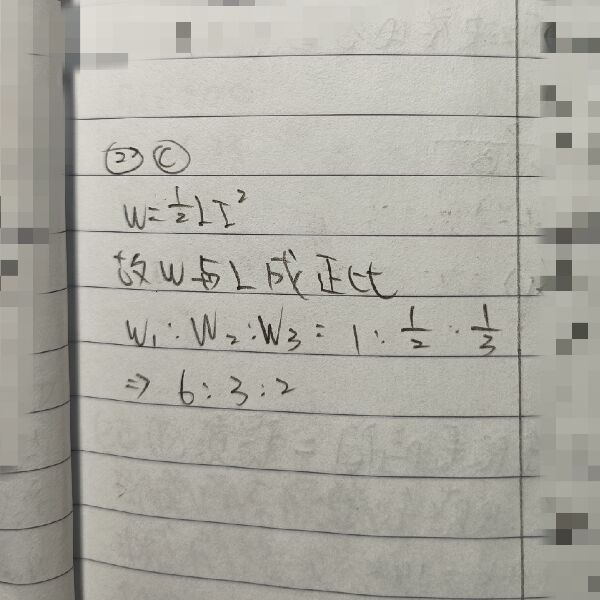 ㉓ Ⓒ
W=½LI²
故W与L成正比
W₁:W₂:W₃=1:½:⅓
⇒ 6:3:2